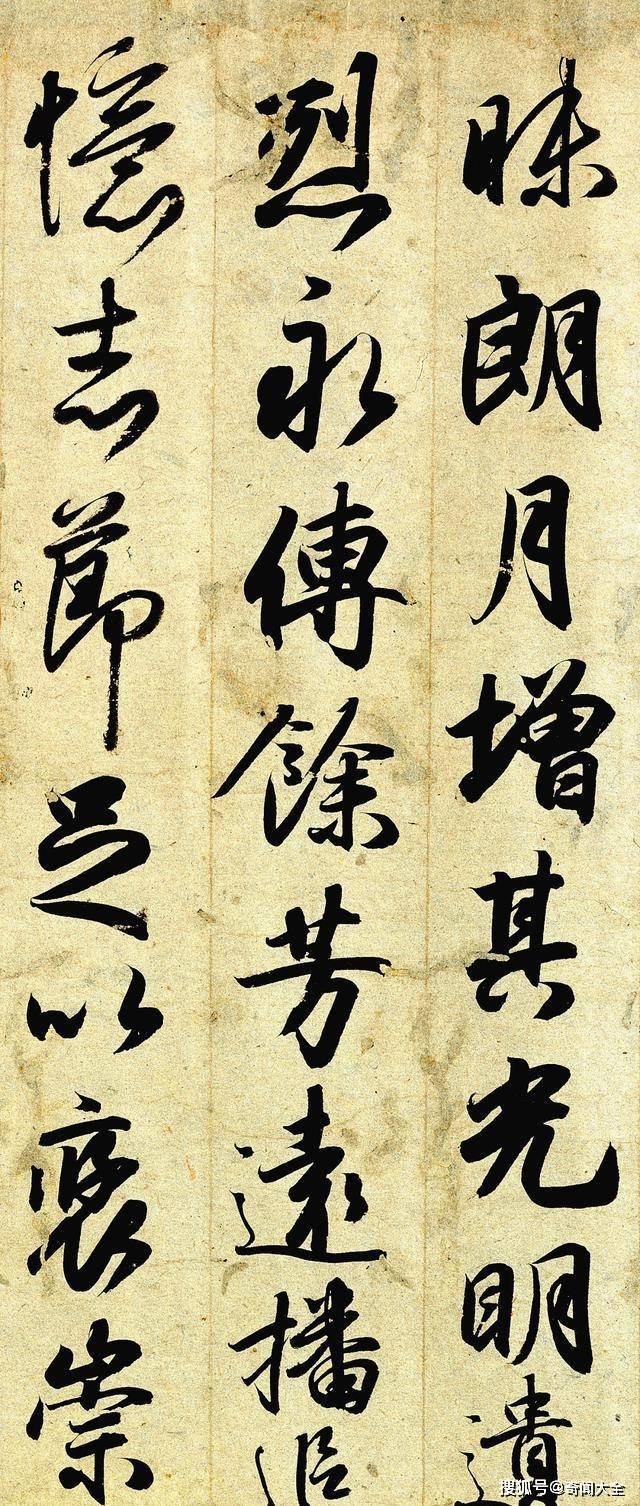 昧朗月增其光明遺
烈永傳餘芳遠播追
憶志節足以褒崇
搜狐号@奇闻大全